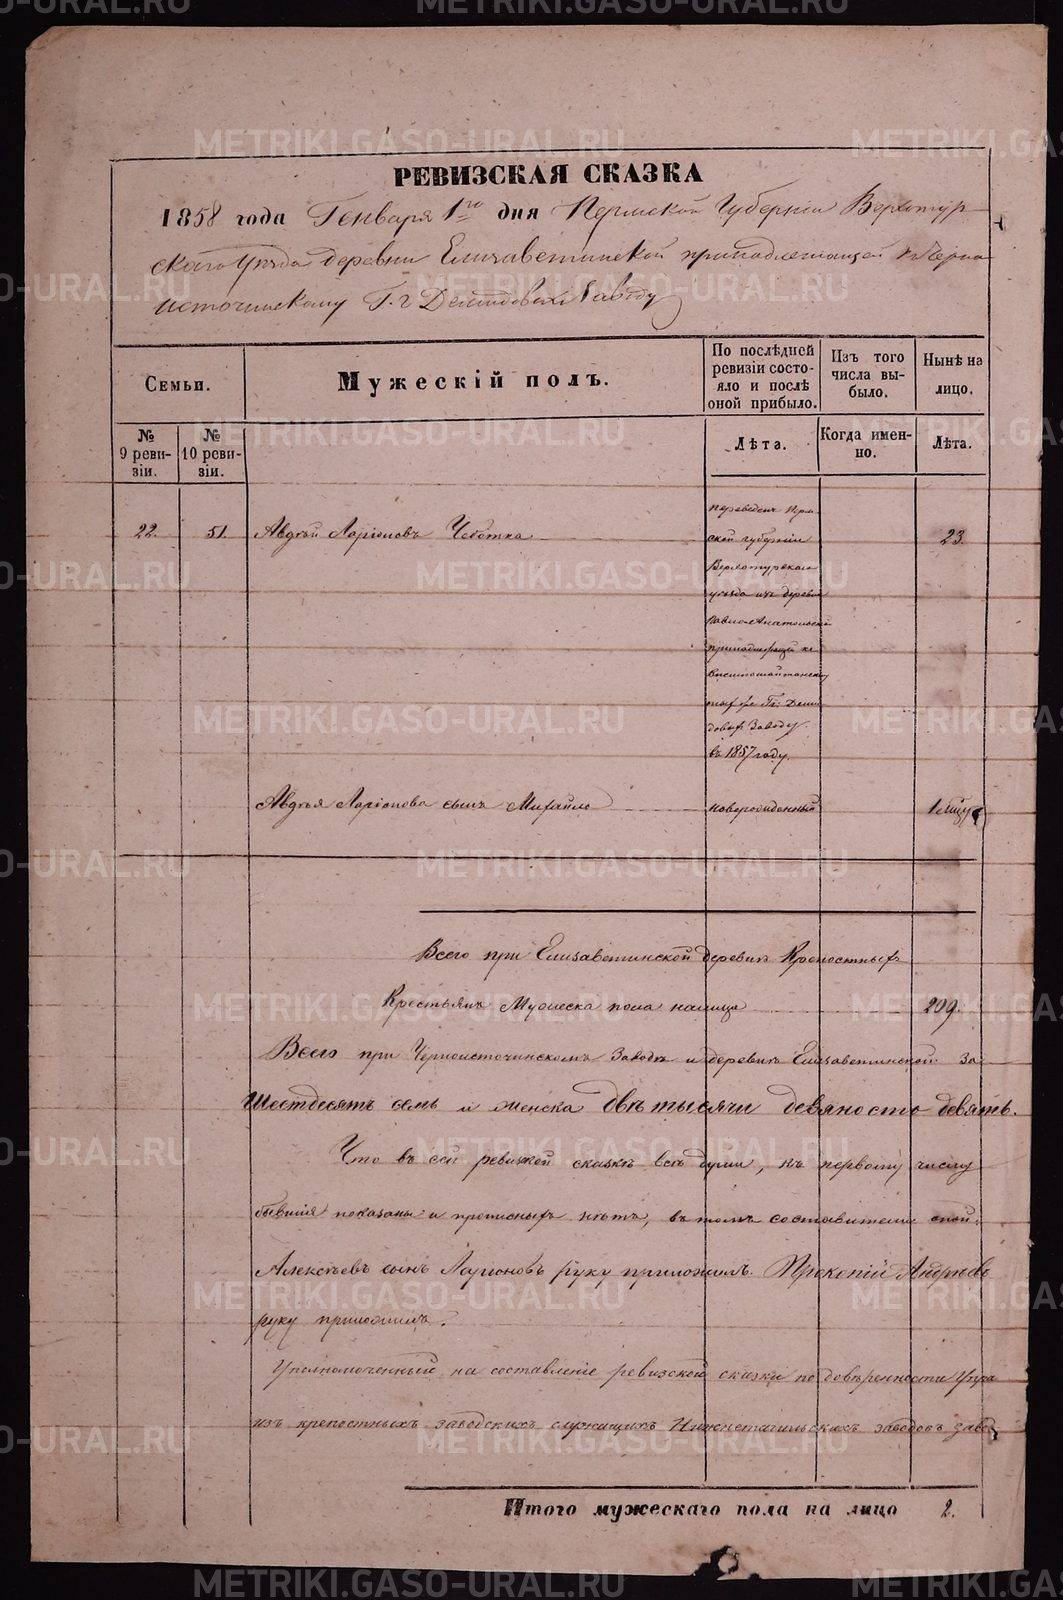 РЕВИЗСКАЯ СКАЗКА
1858 года Генваря 1го дня Пермской Губернiи Верхотур
скаго Уѣзда деревни Елизаветинской принадлежащей къ Черно
источинскому Г. г Демидовыхъ Заводу
Семьи.
Мужескiй полъ.
По послѣдней ревизiи состо-
яло и послѣ
оной прибыло.
Изъ того
числа вы-
было.
Нынѣ на
лицо.
№
9 реви-
зiи.
№
10 реви-
зiи.
Лѣта.
Когда имен-
но.
Лѣта.
22. 51. Авдѣй Ларiоновъ Чеботка 23.
переведенъ Перм
ской губернiи
Верхотурскаго
уѣзда изъ деревни
Павло-Анатольской
принадлежащей къ
Висимошайтанско
му Гг: Деми
довыхъ Заводу
въ 1857 году.
Авдѣя Ларiонова сынъ Михайло новорожденный 1 мѣсяц
Всего при Елизаветинской деревнѣ Крепостныхъ
Крестьянъ Мужеска пола налицо 209.
Всего при Черноисточинскомъ Заводѣ и деревнѣ Елизаветинской за
Шестдесятъ семь и женска двѣ тысячи девяносто девять.
Что въ сей ревизкой сказкѣ всѣ души, къ первому числу
бывшiя показаны и прописныхъ нѣтъ, въ томъ составители
Алексѣевъ сынъ Ларионовъ руку приложилъ. Прокопiй Андреевъ
руку приложилъ.
Уполномоченный на составленiе ревизской сказки по довѣренности Упра
изъ крепостныхъ заводскихъ служащихъ Нижнетагильскихъ заводовъ завод
Итого мужескаго пола на лицо 2.
METRIKI.GASO-URAL.RU